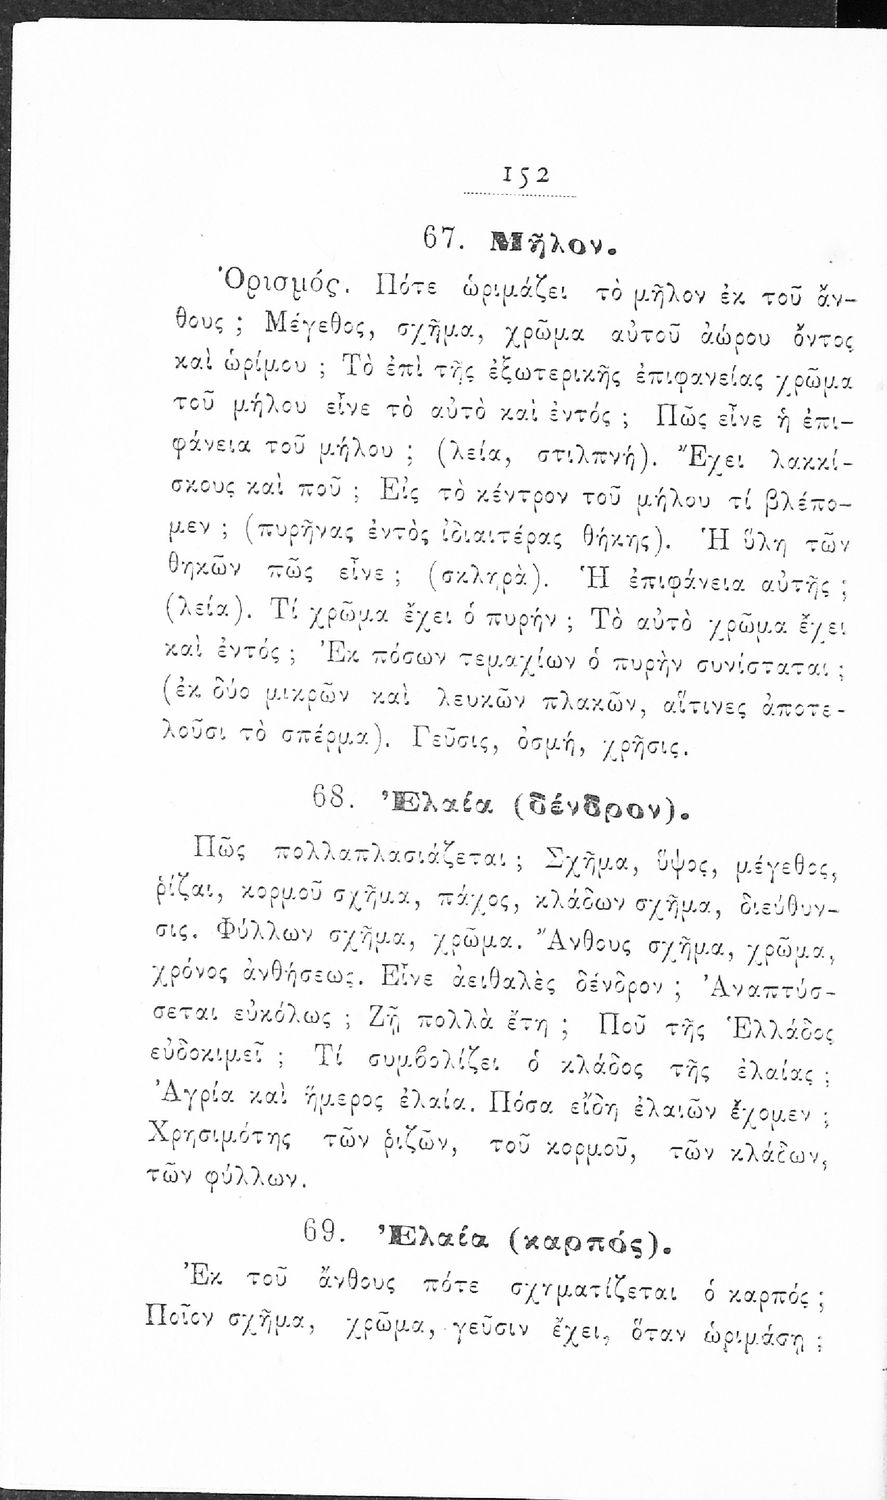 152
67. Μῆλον.
Ὁρισμός. Πότε ὡριμάζει τὸ μῆλον ἐκ τοῦ ἄν-
θους ; Μέγεθος, σχῆμα, χρῶμα αὐτοῦ ἀώρου ὄντος
καὶ ὡρίμου ; Τὸ ἐπὶ τῆς ἐξωτερικῆς ἐπιφανείας χρῶμα
τοῦ μήλου εἶνε τὸ αὐτὸ καὶ ἐντός ; Πῶς εἶνε ἡ ἐπι-
φάνεια τοῦ μήλου ; (λεία, στιλπνή). Ἔχει λακκί-
σκους καὶ ποῦ ; Εἰς τὸ κέντρον τοῦ μήλου τί βλέπο-
μεν ; (πυρῆνας ἐντὸς ἰδιαιτέρας θήκης). Ἡ ὕλη τῶν
θηκῶν πῶς εἶνε ; (σκληρὰ). Ἡ ἐπιφάνεια αὐτῆς ;
(λεία). Τί χρῶμα ἔχει ὁ πυρήν ; Τὸ αὐτὸ χρῶμα ἔχει
καὶ ἐντός ; Ἐκ πόσων τεμαχίων ὁ πυρὴν συνίσταται ;
(ἐκ δύο μικρῶν καὶ λευκῶν πλακῶν, αἵτινες ἀποτε-
λοῦσι τὸ σπέρμα). Γεῦσις, ὀσμή, χρῆσις.
68. Ἐλαία (δένδρον).
Πῶς πολλαπλασιάζεται ; Σχῆμα, ὕψος, μέγεθος,
ῥίζαι, κορμοῦ σχῆμα, πάχος, κλάδων σχῆμα, διεύθυν-
σις. Φύλλων σχῆμα, χρῶμα. Ἄνθους σχῆμα, χρῶμα,
χρόνος ἀνθήσεως. Εἶνε ἀειθαλὲς δένδρον ; Ἀναπτύσ-
σεται εὐκόλως ; Ζῇ πολλὰ ἔτη ; Ποῦ τῆς Ἑλλάδος
εὐδοκιμεῖ ; Τί συμβολίζει ὁ κλάδος τῆς ἐλαίας ;
Ἀγρία καὶ ἥμερος ἐλαία. Πόσα εἴδη ἐλαιῶν ἔχομεν ;
Χρησιμότης τῶν ῥιζῶν, τοῦ κορμοῦ, τῶν κλάδων,
τῶν φύλλων.
69. Ἐλαία (καρπός).
Ἐκ τοῦ ἄνθους πότε σχηματίζεται ὁ καρπός ;
Ποῖον σχῆμα, χρῶμα, γεῦσιν ἔχει, ὅταν ὡριμάσῃ ;